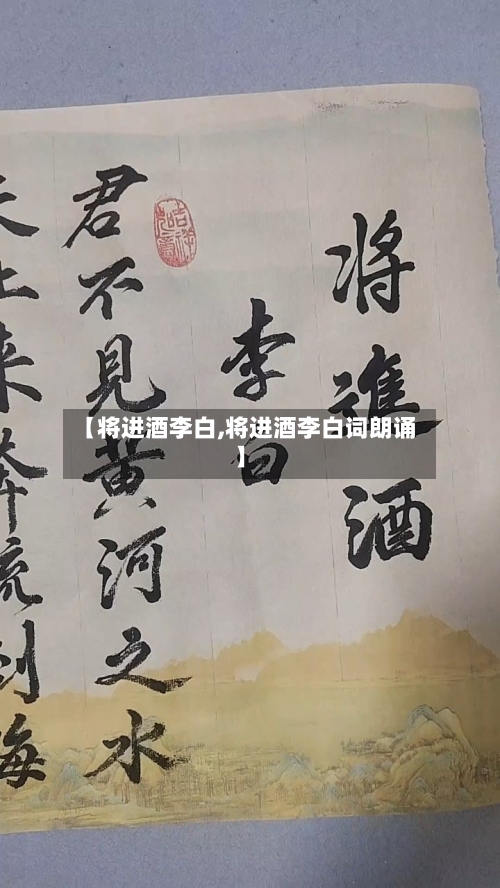 将進酒
李白
君不見黄河之水
天上来奔流到海
【将进酒李白,将进酒李白词朗诵
】